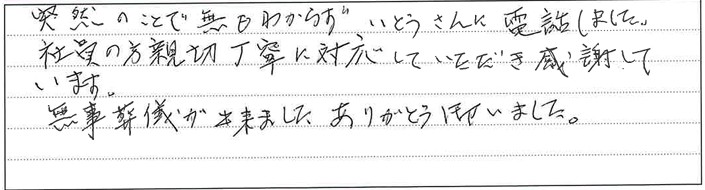 突然のことで無もわからず いとうさんに電話しました。
社員の方親切丁寧に対応していただき感謝して
います。
無事葬儀が出来ました ありがとうございました。